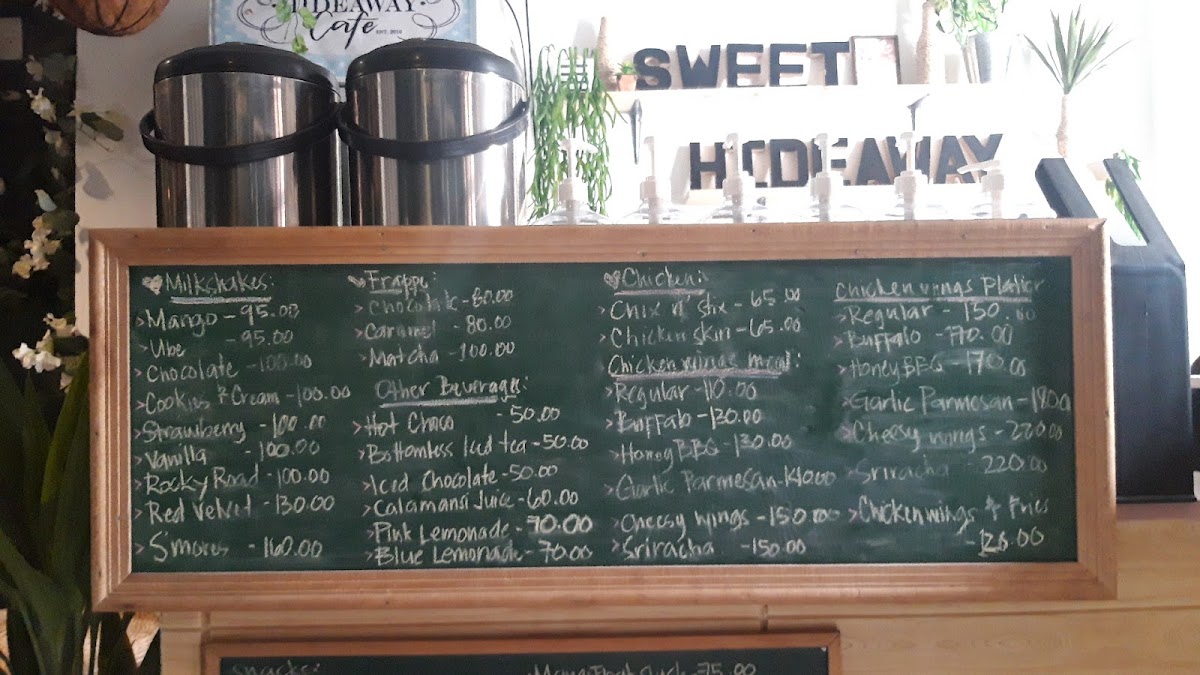 HIDEAWAY
Cafe
SWEET
HIDEAWAY
Milkshakes:
>Mango - 95.00
>Ube - 95.00
>Chocolate - 100.00
>Cookies & Cream - 100.00
>Strawberry - 100.00
>Vanilla - 100.00
>Rocky Road - 100.00
>Red Velvet - 130.00
>S'mores - 160.00
Frappe:
>Chocolate - 80.00
>Caramel - 80.00
>Matcha - 100.00
Other Beverages:
>Hot Choco - 50.00
>Bottomless Iced tea - 50.00
>Iced Chocolate - 50.00
>Calamansi Juice - 60.00
>Pink Lemonade - 70.00
>Blue Lemonade - 70.00
Chicken:
>Chix n' stix - 65.00
>Chicken skin - 65.00
Chicken wings meal:
>Regular - 110.00
>Buffalo - 130.00
>Honey BBQ - 130.00
>Garlic Parmesan - 140.00
>Cheesy wings - 150.00
>Sriracha - 150.00
Chicken wings Platter
>Regular - 150.00
>Buffalo - 170.00
>Honey BBQ - 170.00
>Garlic Parmesan - 180.0
>Cheesy wings - 220.00
>Sriracha - 220.00
>Chicken wings & Fries
- 126.00
Snacks:
- 75.00